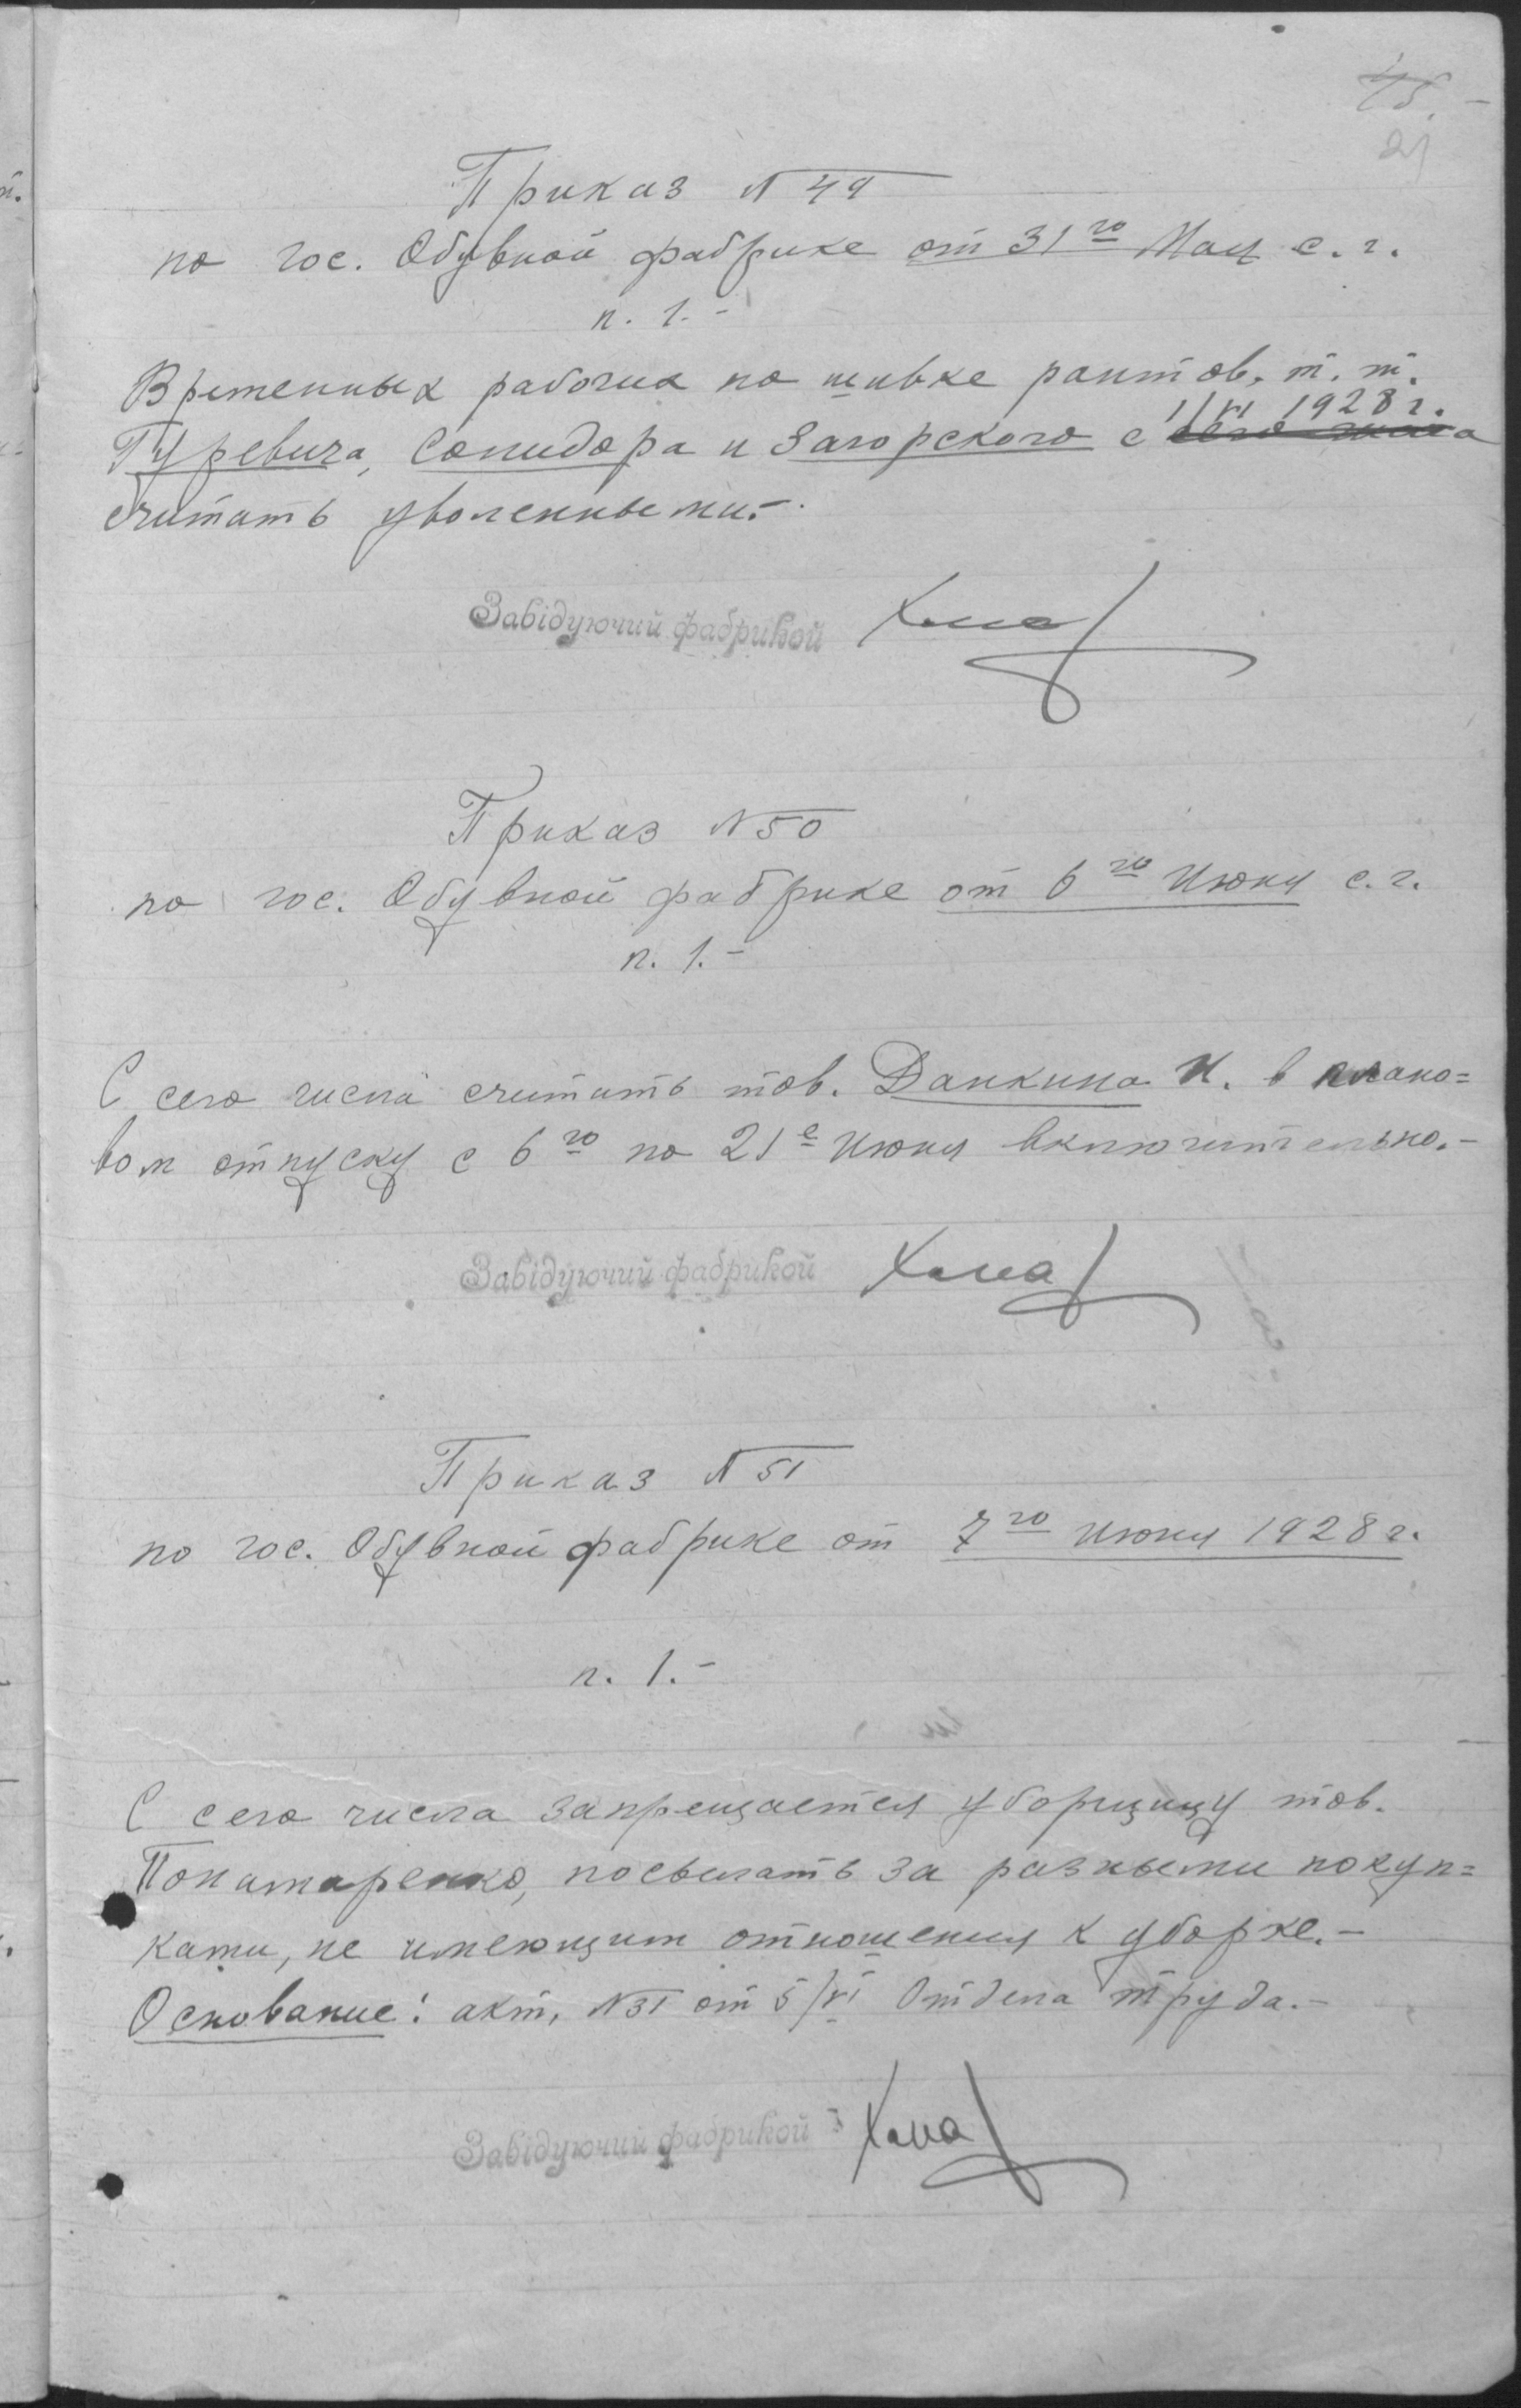 21
Приказ №49
по гос. Обувной фабрике от 31го Мая с. г.
п. 1.-
Временных рабочих по шивке рантов, т. т.
1/VI 1928 г.
Гуревича, Солидора и Загорского с сего числа
считать уволенными.-
Завідуючий фабрикой
Приказ №50
по гос. Обувной фабрике от 6го Июня с. г.
п. 1.-
С сего числа считать тов. Данкина И. в плано=
вом отпуску с 6го по 21е Июня включительно.-
Завідуючий фабрикой
Приказ №51
по гос. Обувной фабрике от 7го Июня 1928 г.
п. 1.-
С сего числа запрещается уборщицу тов.
Понатаренко, посылать за разными покуп=
ками, не имеющим отношения к уборке.-
Основание: акт, №31 от 5/VI Отдела труда.-
Завідуючий фабрикой